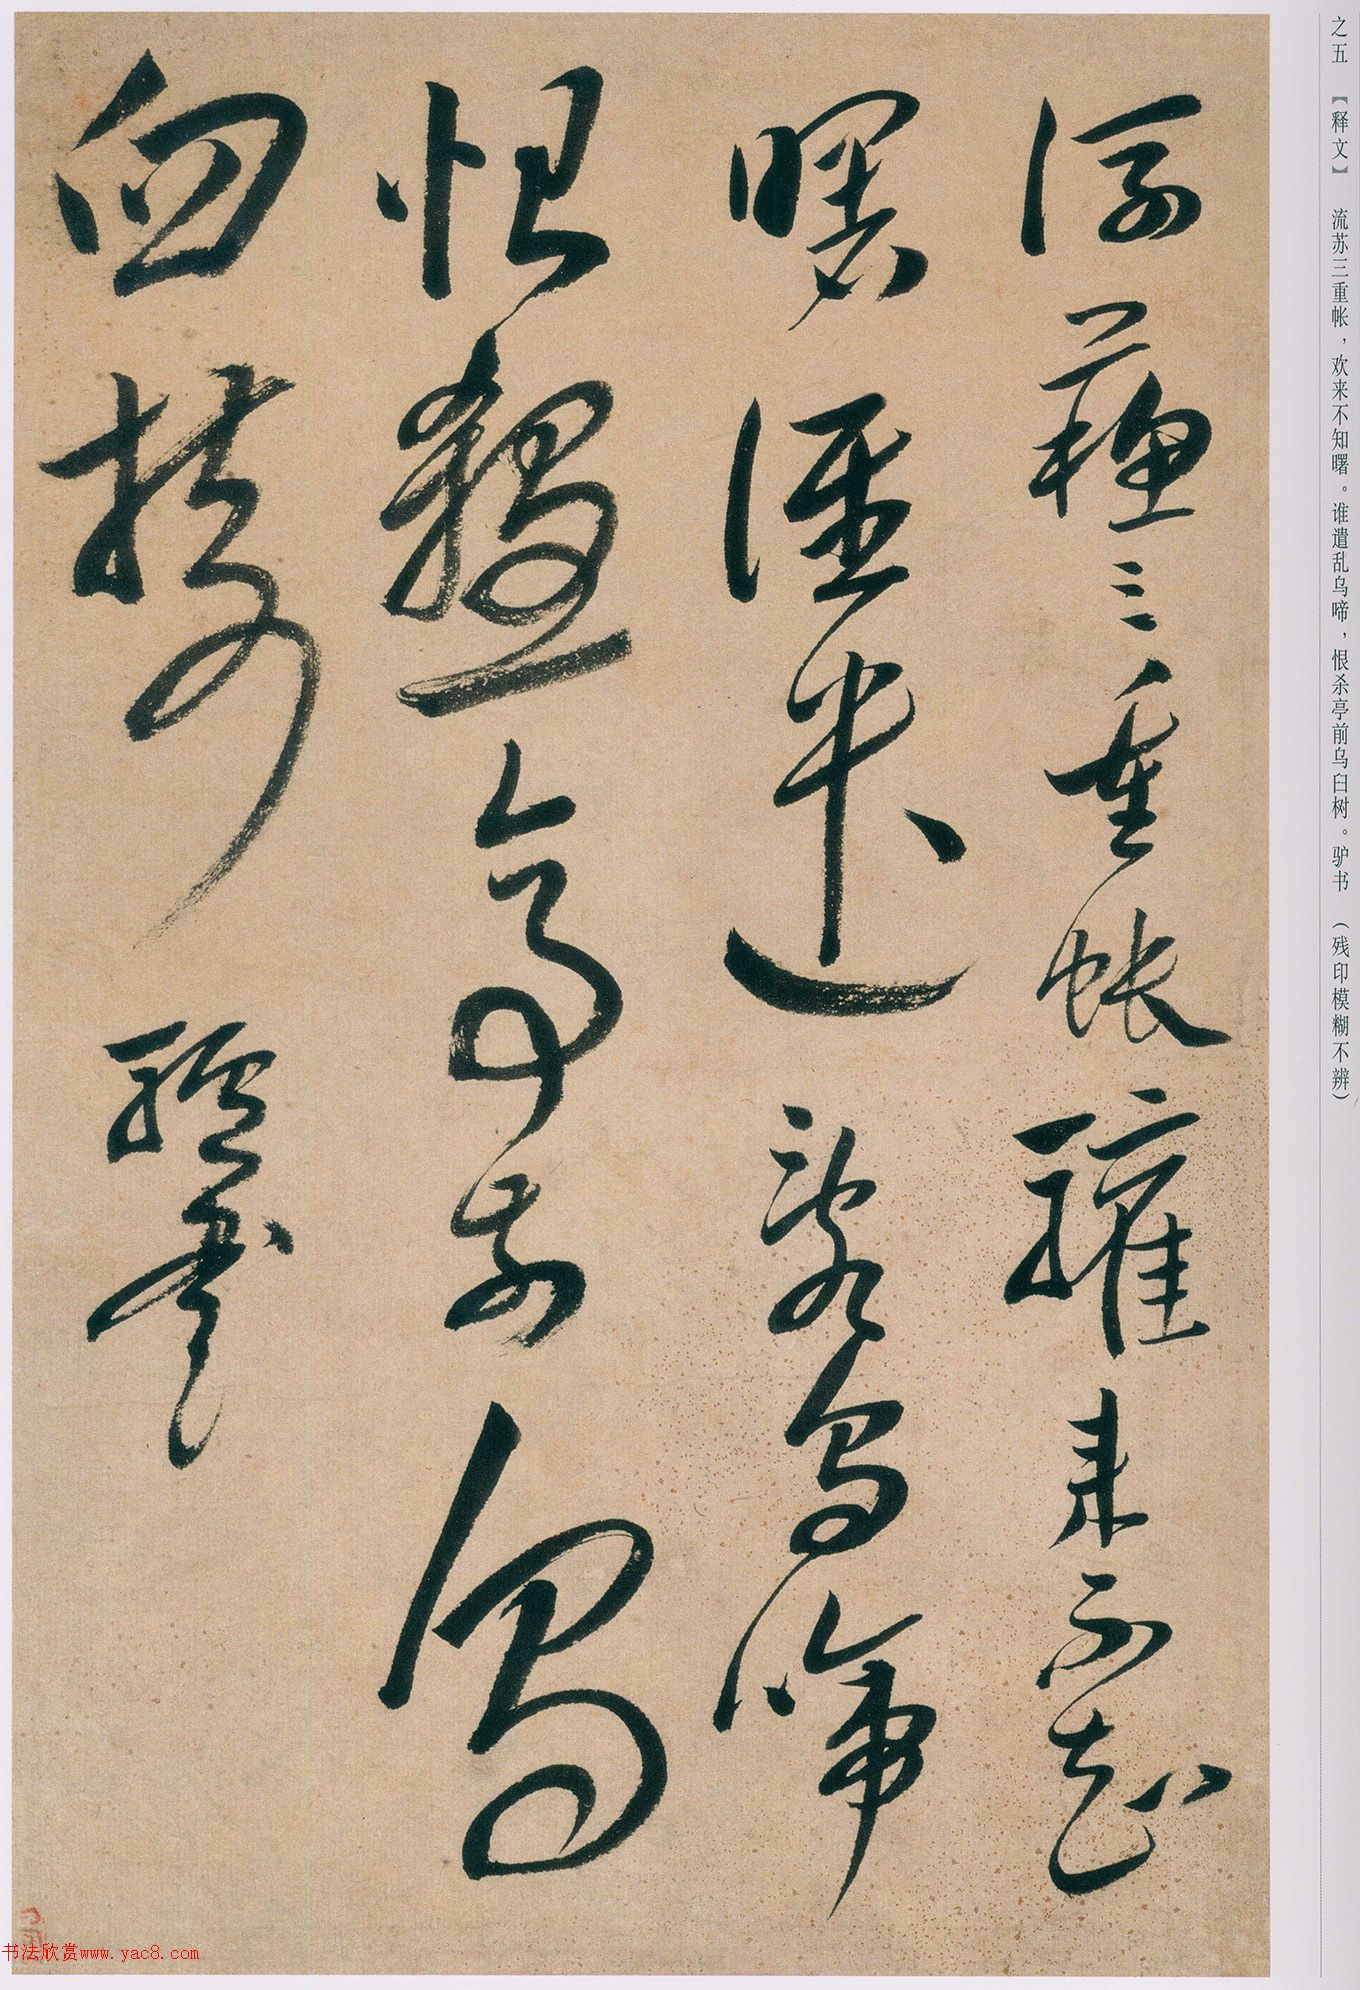 之五 【释文】 流苏三重帐，欢来不知曙。谁遣乱乌啼，恨杀亭前乌臼树。驴书 （残印模糊不辨）
流蘇三重帳驩來不知
曙誰遣亂烏啼
恨殺亭前烏
臼樹 驢書
书法欣赏www.yac8.com